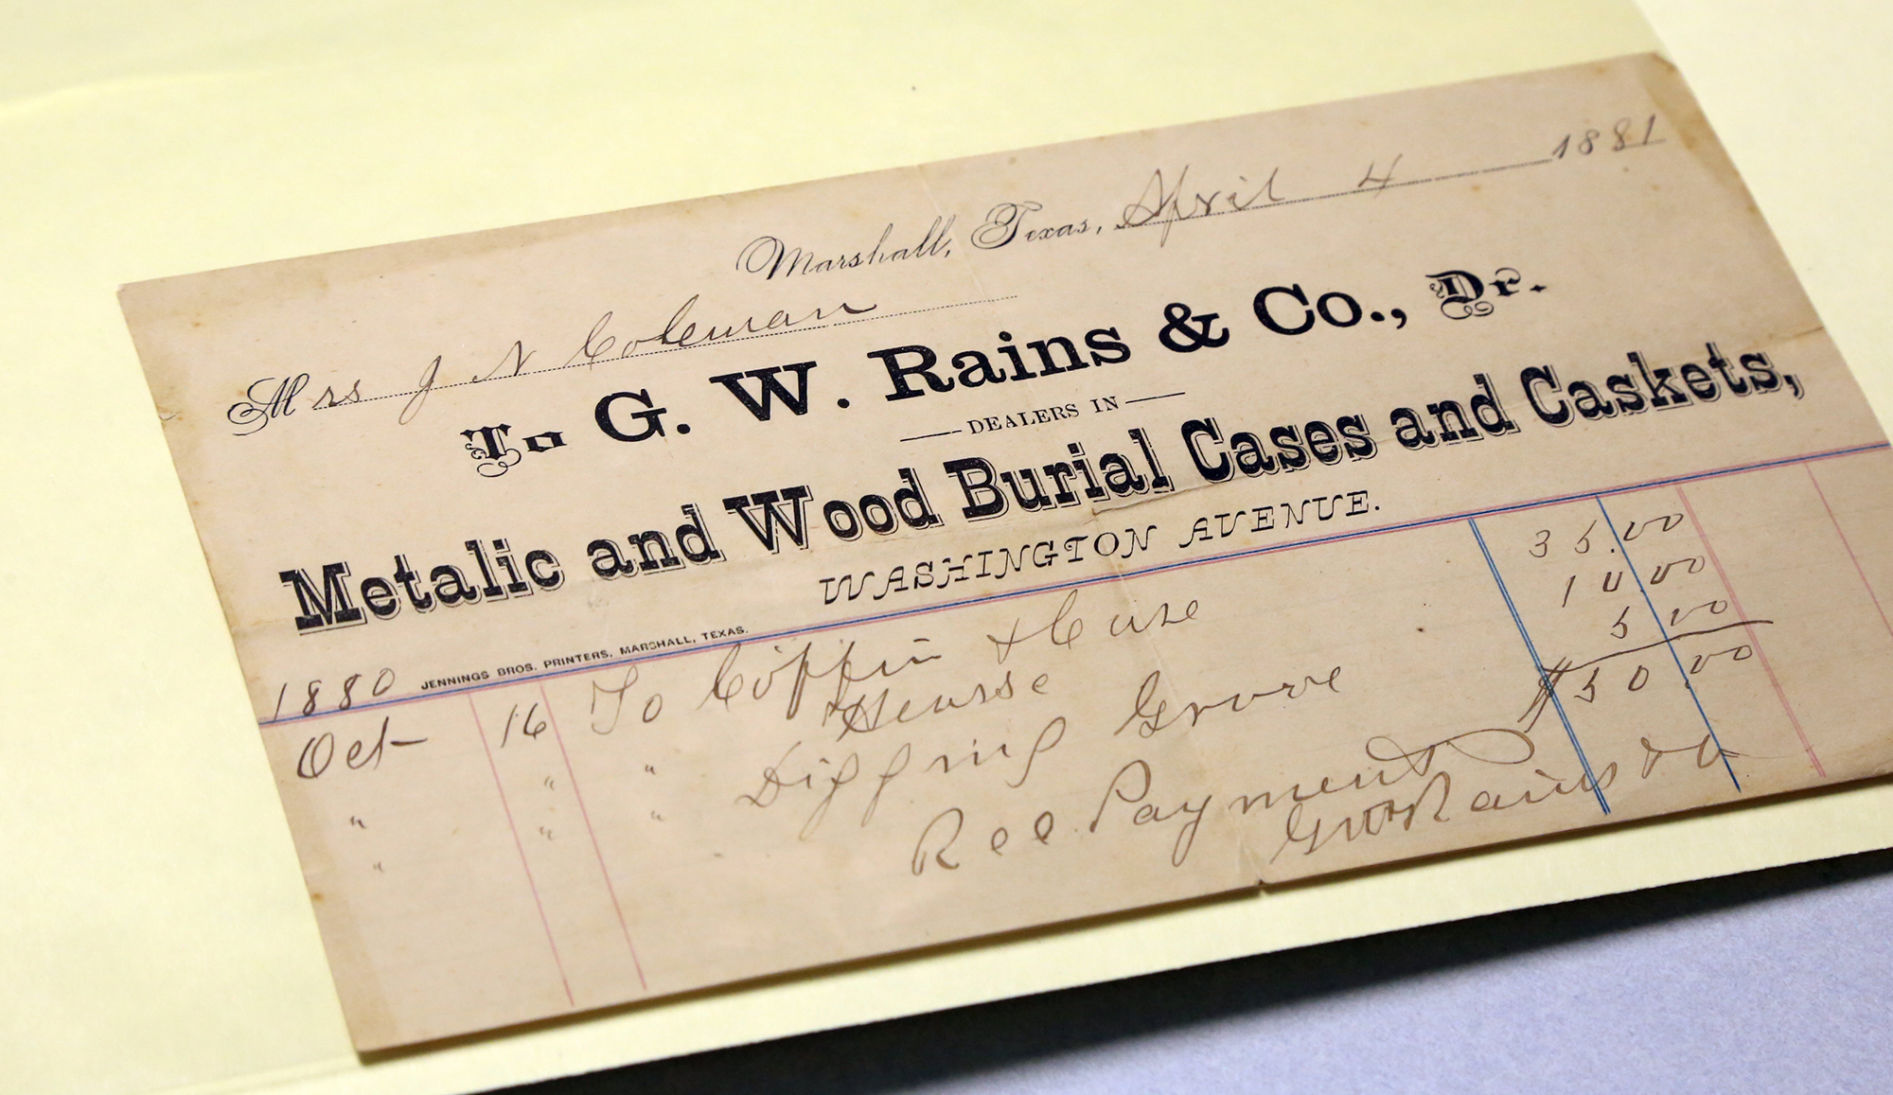 Marshall, Texas, April 4 1881
Mrss J N Coleman
To G. W. Rains & Co., Dr.
DEALERS IN
Metalic and Wood Burial Cases and Caskets,
WASHINGTON AVENUE.
JENNINGS BROS. PRINTERS, MARSHALL, TEXAS.
1880
Oct 16 To Coffin & Case 35.00
" " " Hearse 10.00
" " " Digging Grave 5.00
$50.00
Rec Payment
GW Rains & Co